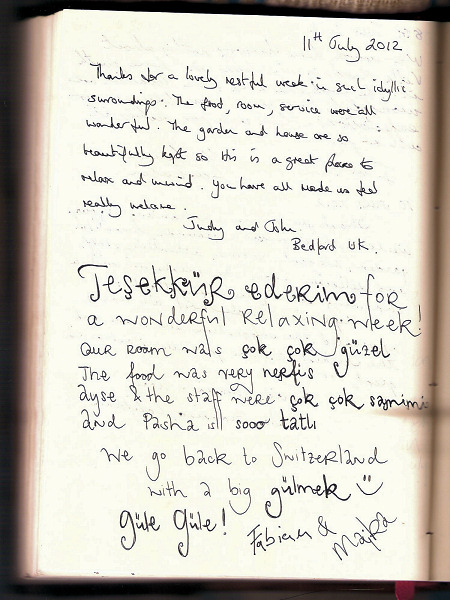 11th July 2012
Thanks for a lovely restful week in such idyllic
surroundings. The food, room, service were all
wonderful. The garden and house are so
beautifully kept so this is a great place to
relax and unwind. You have all made us feel
really welcome.
Judy and John
Bedford UK.
Teşekkür ederim for
a wonderful relaxing week!
Our room was çok çok güzel
The food was very nefis
ayse & the staff were çok çok samimi
and Pasha is sooo tatlı
We go back to Switzerland
with a big gülmek
Güle Güle!
&